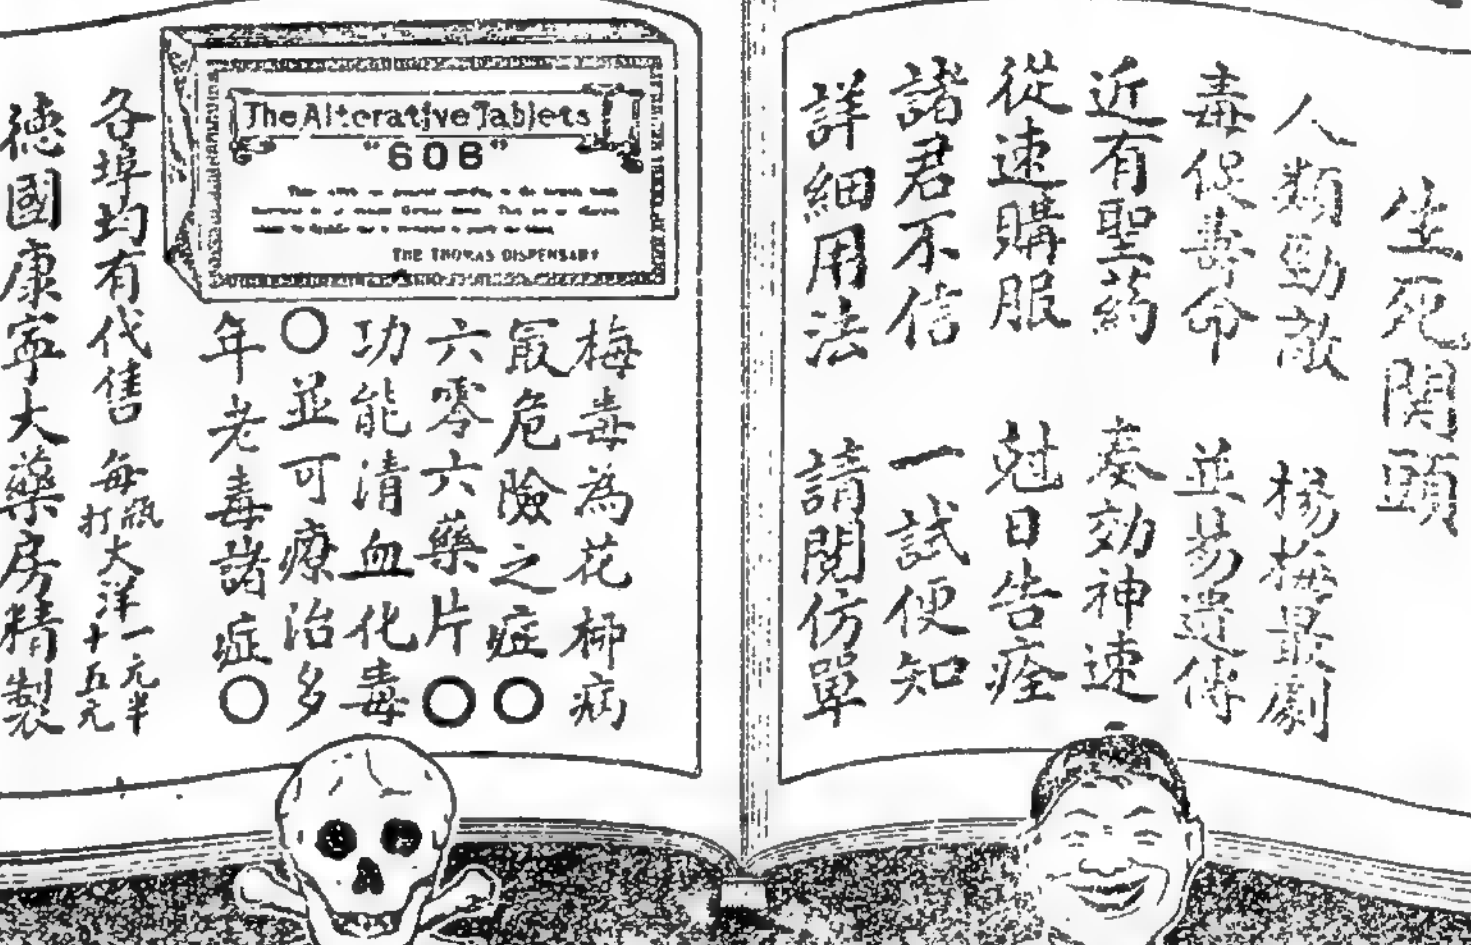 生死関頭
人類勁敵 楊梅最劇
毒促壽命 並易遺傳
近有聖药 奏効神速
從速購服 尅日告痊
諸君不信 一試便知
詳細用法 請閱仿單
The Alterative Tablets
"606"
THE THOMAS DISPENSARY
梅毒為花柳病
冣危險之症○
六零六藥片○
功能清血化毒
○並可療治多
年老毒諸症○
各埠均有代售 每瓶大洋一元半 打十五元
德國康寧大藥房精製